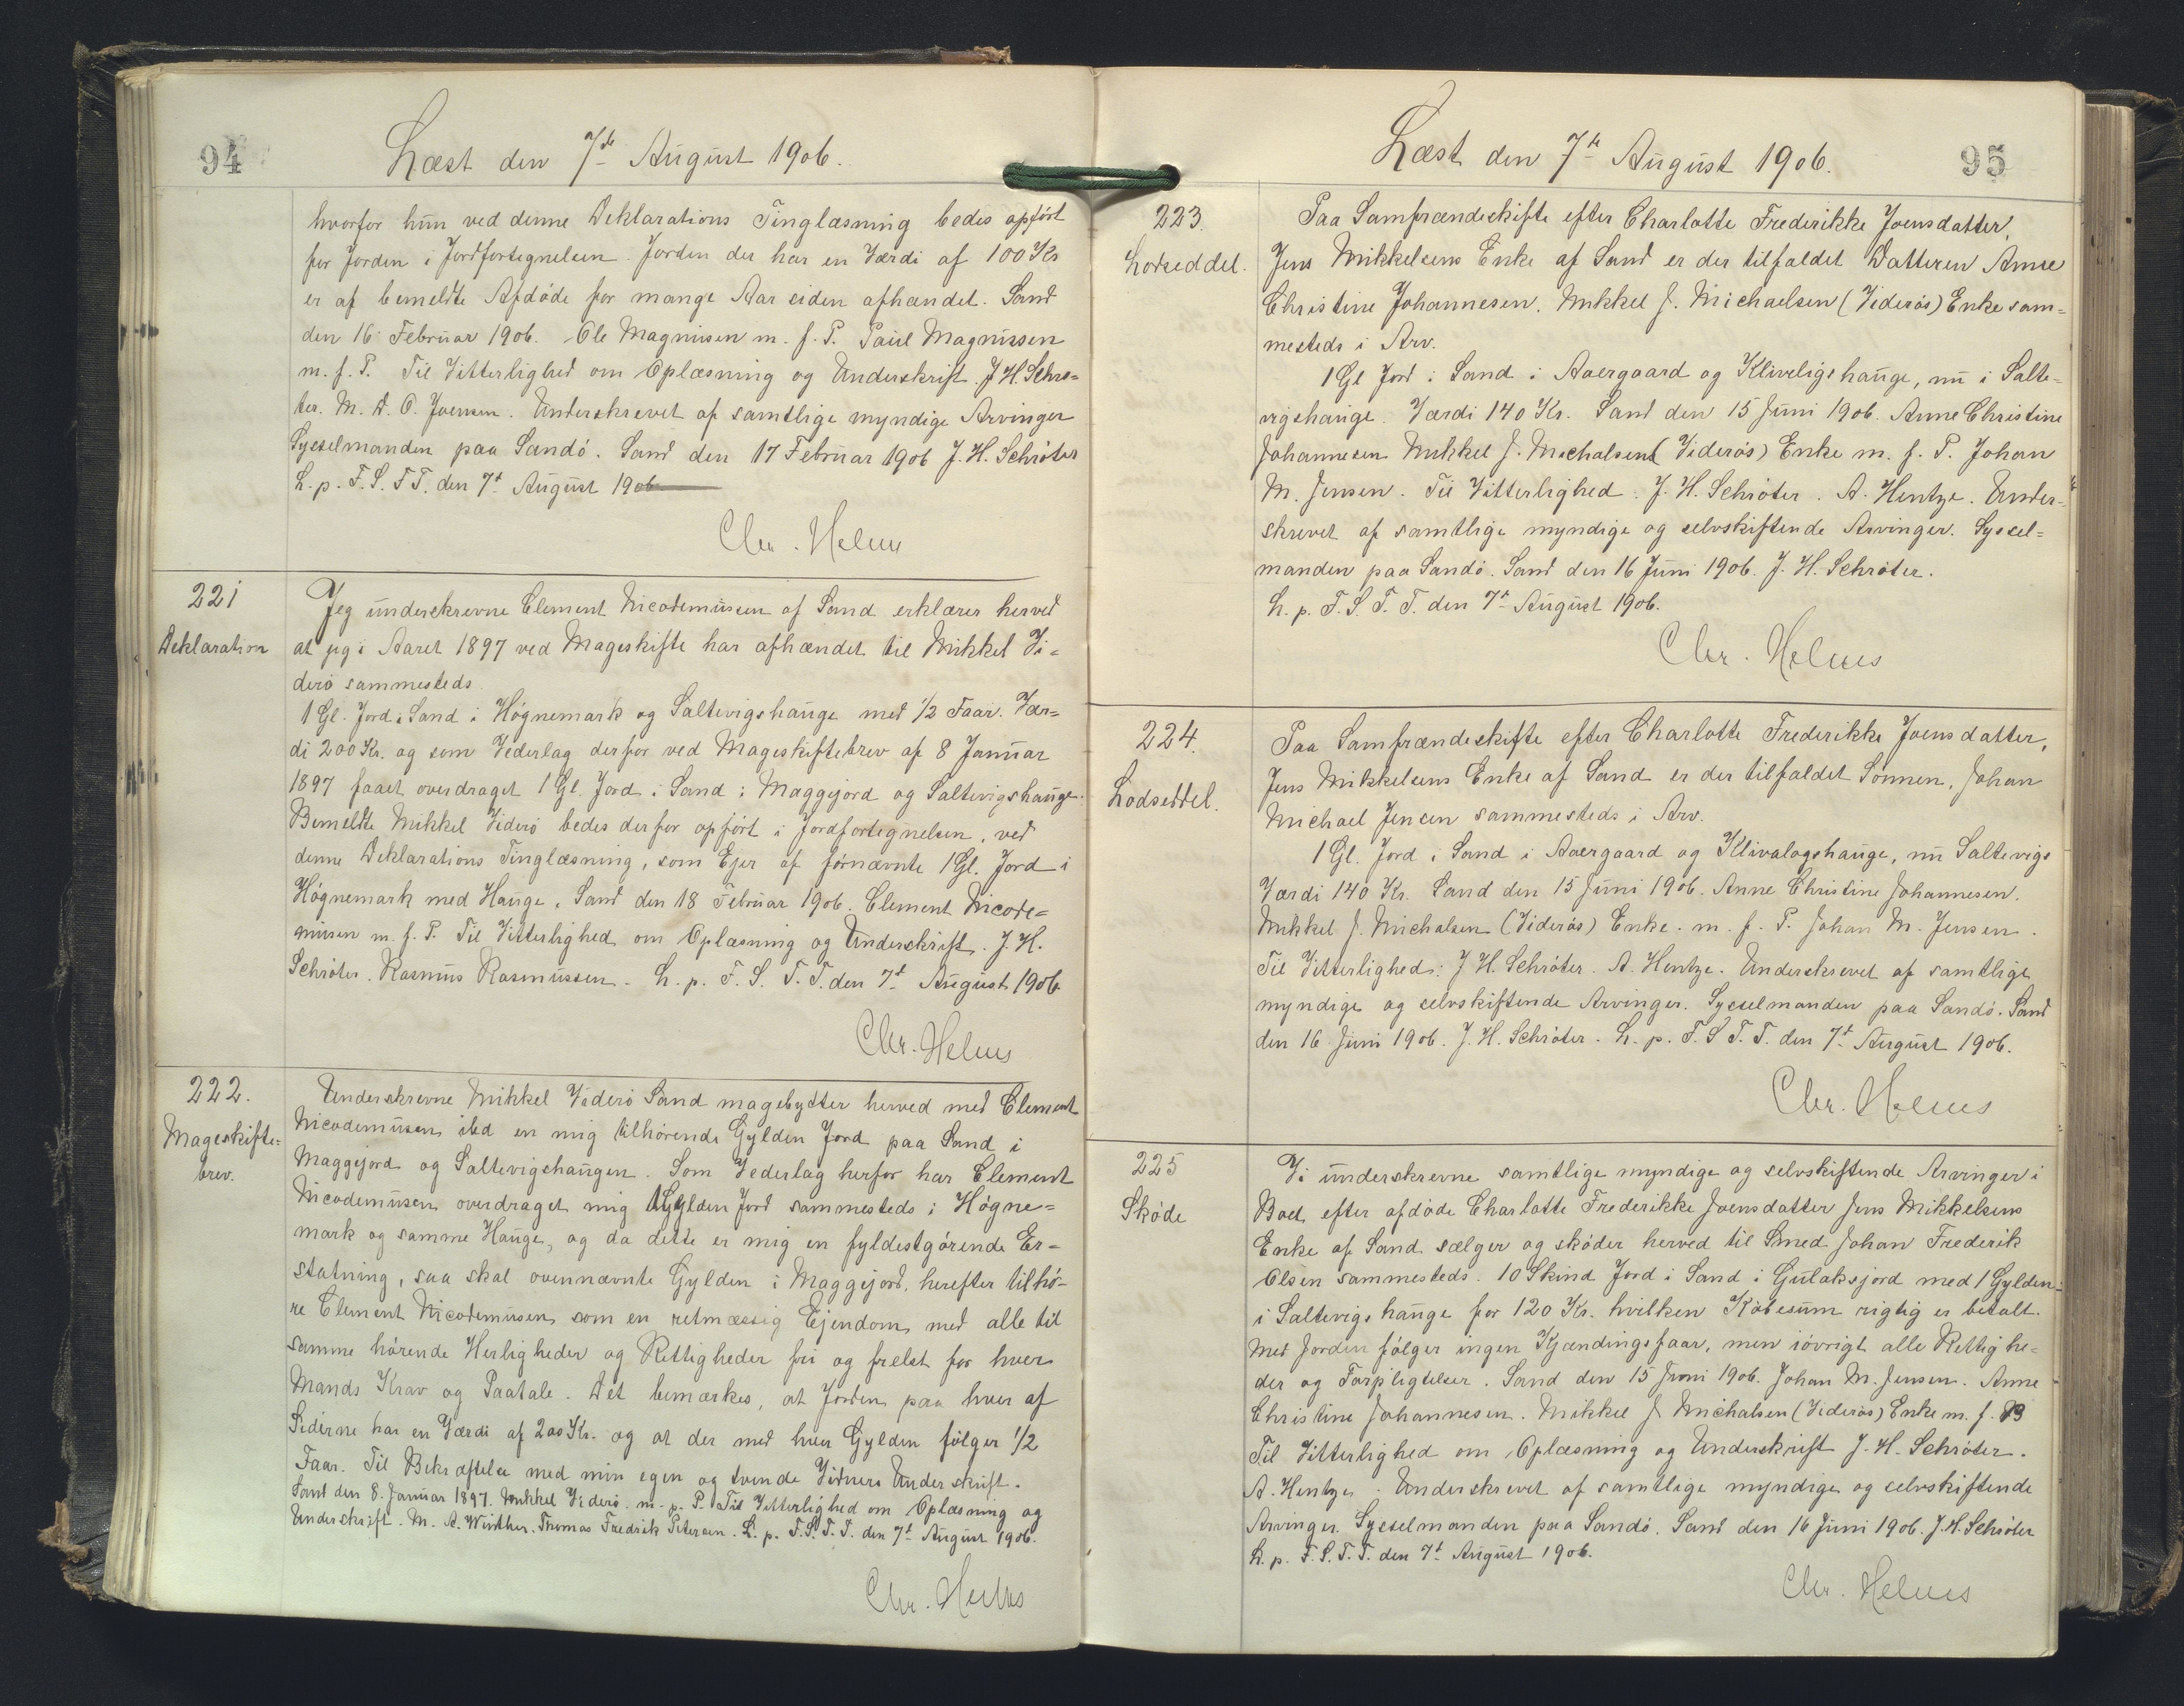 94
Læst den 7de August 1906.
hvorfor hun ved denne Deklarations Tinglæsning bedes opført
for Jorden i Jordfortegnelsen. Jorden der har en Værdi af 100 Kr
er af bemeldte Afdøde for mange Aar siden afhændet. Sand
den 16 Februar 1906. Ole Magnusen m. f. P. Paul Magnussen
m. f. P. Til Vitterlighed om Oplæsning og Underskrift. J H. Schrö=
ter. M. D. O. Joensen. Underskrevet af samtlige myndige Arvinger
Sysselmanden paa Sandö. Sand den 17 Februar 1906 J. H. Schröter
L. p. F. S. F T. den 7d August 1906
Chr. Helms
221
Deklaration
Jeg underskrevne Clement Nicodemussen af Sand erklærer herved
at jeg i Aaret 1897 ved Mageskifte har afhændet til Mikkel Vi=
derö sammesteds.
1 Gl. Jord i Sand i Högnemark og Saltevigshauge med 1/2 Faar. Vær=
di 200 Kr. og som Vederlag derfor ved Mageskiftebrev af 8 Januar
1897 faaet overdraget 1 Gl. Jord i Sand i Maggejord og Saltevigshauge.
Bemeldte Mikkel Viderö bedes derfor opført i Jordfortegnelsen, ved
denne Deklarations Tinglæsning, som Ejer af förnævnte 1 Gl. Jord i
Högnemark med Hauge. Sand den 18 Februar 1906. Clement Nicode=
musen m. f. P. Til Vitterlighed om Oplæsning og Underskrift. J. H.
Schröter. Rasmus Rasmussen. L. p. F. S. T. T. den 7d August 1906
Chr. Helms
222.
Mageskifte=
brev.
Underskrevne Mikkel Viderö Sand magebytter herved med Clement
Nicodemusen ibd en mig tilhörende Gylden Jord paa Sand i
Maggejord og Saltevigshaugen. Som Vederlag herfor har Clement
Nicodemusen overdraget mig 1 Gylden Jord sammesteds i Högne=
mark og samme Hauge, og da dette er mig en fyldestgörende Er=
statning, saa skal ovennævnte Gylden i Maggejord, herefter tilhö=
re Clement Nicodemusen som en retmæssig Ejendom med alle til
samme hörende Herligheder og Rettigheder fri og frelst for hver
Mands Krav og Paatale. Det bemærkes, at Jorden paa hver af
Siderne har en Værdi af 200 Kr. og at der med hver Gylden følger 1/2
Faar. Til Bekræftelse med min egen og tvende Vidners Underskrift.
Sand den 8. Januar 1897. Mikkel Viderö. m. p. P. Til Vitterlighed om Oplæsning og
Underskrift. M. A. Winther. Thomas Fredrik Petersen. L. p. F. S. T. T. den 7d August 1906.
Chr. Helms
Læst den 7de August 1906.
95
223.
Lodseddel.
Paa Samfrændeskifte efter Charlotte Frederikke Joensdatter,
Jens Mikkelsens Enke af Sand er der tilfaldet Datteren Anne
Christine Johannesen. Mikkel J. Michaelsen (Viderös) Enke sam=
mesteds i Arv.
1 Gl Jord i Sand i Aaergaard og Kliveligshauge, nu i Salte=
vigshauge. Værdi 140 Kr. Sand den 15 Juni 1906. Anne Christine
Johannesen Mikkel J. Michalsen (Viderös) Enke m. f. P. Johan
M. Jensen. Til Vitterlighed: J. H. Schröter. A. Hentze. Under=
skrevet af samtlige myndige og selvskiftende Arvinger. Syssel=
manden paa Sandö. Sand den 16 Juni 1906. J. H. Schröter.
L. p. F. S. T. T. den 7d August 1906.
Chr. Helms
224.
Lodseddel.
Paa Samfrændeskifte efter Charlotte Frederikke Joensdatter,
Jens Mikkelsens Enke af Sand er der tilfaldet Sönnen, Johan
Michael Jensen sammesteds i Arv.
1 Gl. Jord i Sand i Aaergaard og Klivalogshauge, nu Saltevigs
Værdi 140 Kr. Sand den 15 Juni 1906. Anne Christine Johannesen.
Mikkel J. Michalsen (Viderös) Enke. m. f. P. Johan M. Jensen.
Til Vitterlighed: J H. Schröter. A. Hentze. Underskrevet af samtlige
myndige og selvskiftende Arvinger. Sysselmanden paa Sandö. Sand
den 16 Juni 1906. J. H. Schröter. L. p. F. S T. T. den 7d August 1906.
Chr. Helms
225
Sköde
Vi underskrevne samtlige myndige og selvskiftende Arvinger i
Boet efter afdøde Charlotte Frederikke Joensdatter Jens Mikkelsens
Enke af Sand sælger og sköder herved til Smed Johan Frederik
Olsen sammesteds. 10 Skind Jord i Sand i Gulaksjord med 1 Gylden
i Saltevigshauge for 120 Kr. hvilken Köbesum rigtig er betalt.
Med Jorden fölger ingen Kjændingsfaar, men iövrigt alle Rettighe=
der og Forpligtelser. Sand den 15 Juni 1906. Johan M. Jensen. Anne
Christine Johannesen. Mikkel J Michalsen (Viderös) Enke m. f.
Til Vitterlighed om Oplæsning og Underskrift J. H. Schröter.
A. Hentze. Underskrevet af samtlige myndige og selvskiftende
Arvinger. Sysselmanden paa Sandö. Sand den 16 Juni 1906. J. H. Schröter
L. p. F. S. T. T. den 7d August 1906.
Chr. Helms